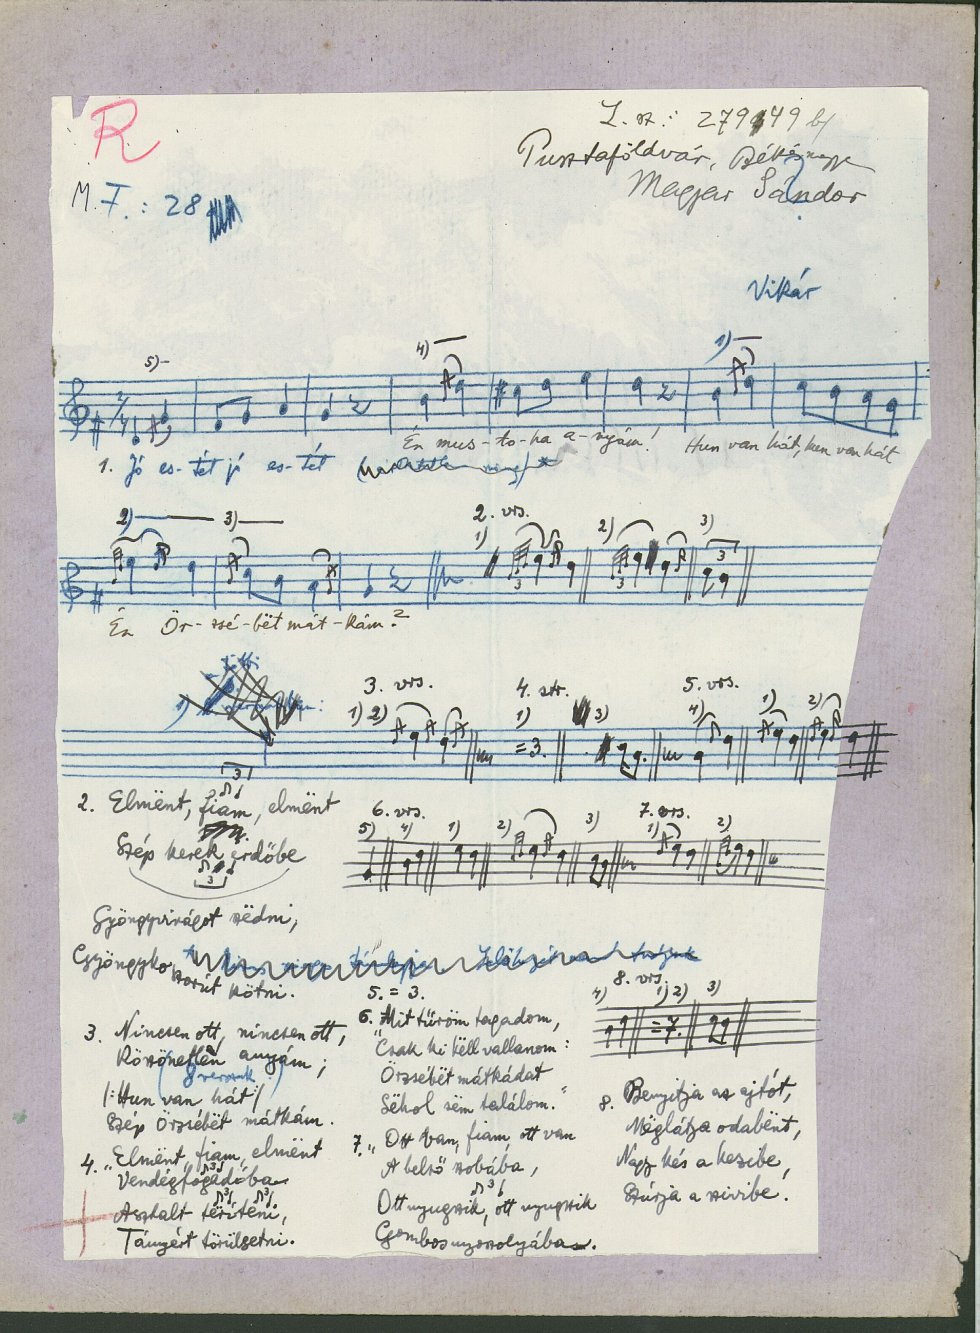 R.
L. sz.: 279149 b/
Pusztaföldvár, Békés megye
Magyar Sándor
?
M. F.: 28
Vikár
5)
4)
1)
2/4
Én mus-to-ha a-nyám! Hun van hát, hun van hát
1. Jó es-tét jó es-tét
2) 3)
2. vrs.
1) 2) 3)
3 3 3
Én Ör-zsé-bët mát-kám?
1)
3. vrs. 4. str. 5. vrs.
1) 2) 1) 3) 4) 1) 2)
=3.
2. Elmënt, fiam, elmënt
Szép kerek erdőbe
Gyöngyvirágot szëdni,
Gyöngyko
szorút kötni.
6. vrs. 7. vrs.
5) 4) 1) 2) 3) 1) 2)
3. Nincsen ott, nincsen ott,
Köszönetlen anyám;
/:Hun van hát:/
Szép Örzsébët mátkám.
4. „Elmënt fiam, elmënt
Vendégfogadóba
Asztalt teríteni,
Tányért törülgetni.
5. = 3.
6. „Mit tűröm tagadom,
Csak ki këll vallanom:
Örzsébët mátkádat
Sëhol sëm találom."
7. „Ott van, fiam, ott van
A belső szobába,
Ott nyugszik, ott nyugszik
Gombos nyoszolyába.
8. vrs.
4) 1) 2) 3)
=7.
8. Benyitja az ajtót,
Mëglátja odabënt,
Nagy kés a kezibe,
Szúrja a szivibe!